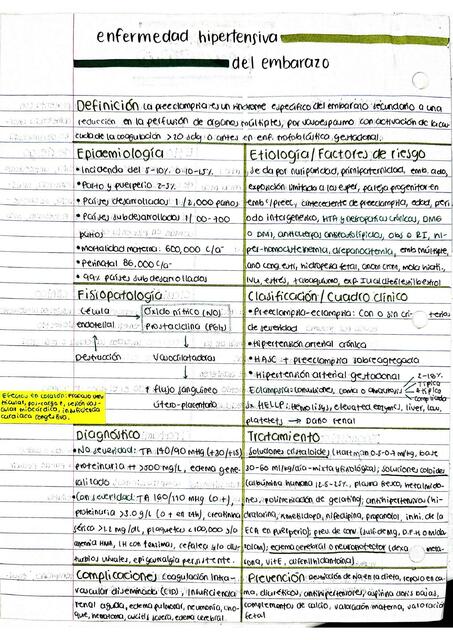 enfermedad hipertensiva
del embarazo
Definición La preeclampsia es un síndrome específico del embarazo secundario a una
reducción en la perfusión de órganos múltiples, por vasoespasmo con activación de la cas-
cada de la coagulación >20 sdg o antes en enf. trofoblástica gestacional.
Epidemiología
• Incidencia del 5-10% o 10-15%
• Parto y puerperio 2-3%
• Países desarrollados 1/2,000 partos
• Países subdesarrollados 1/100-700
partos
• Mortalidad materna: 600,000 c/a
• Perinatal 86,000 c/a
• 99% países subdesarrollados
Etiología/Factores de riesgo
Se da por nuliparidad, primipaternidad, emb. ado,
exposición limitada a los esper, pareja progenitor en
emb c/preec, antecedente de preeclampsia, edad, peri
odo intergenésico, HTA y nefropatías crónicas, DMG
o DM1, anticuerpos antifosfolípidos, obs o RI, hi-
per-homocisteinemia, drepanocitemia, emb. múltiple,
ano cong estr, hidropesía fetal, mola hidati,
IVU, estrés, tabaquismo,
Fisiopatología
Célula endotelial
Óxido nítrico (NO)
Prostaciclina (PGI2)
Destrucción
Vasodilatadoras
↑ flujo sanguíneo
útero-placentario
Efectos en corazón: trabajo ven
tricular, pos-carga ↑, lesión vas
cular miocárdica, insuficiencia
cardiaca congestiva.
Clasificación / Cuadro clínico
• Preeclampsia-eclampsia: Con o sin criterias
de severidad
• Hipertensión arterial crónica
• HASC + preeclampsia sobreagregada
• Hipertensión arterial gestacional
Eclampsia: convulsiones, coma o
2-18%
típica
atípica
complicada
Sx HELLP: Hemolisys, elevated enzyms, liver, low,
platelets → Daño renal
Diagnóstico
• No severidad: TA 140/90 mmHg (+30/+15)
proteinuria + >300 mg/L, edema gene
ralizado
• Con severidad: TA 160/110 mmHg (o +),
proteinuria >3.0 g/L (o + en 24h), creatinina
sérica >1.2 mg/dL, plaquetas <100,000 y/o
anemia HMA, IH con o dis-
turbios visuales, epigastralgia persistente.
Tratamiento
Soluciones cristaloides (Hartman 0.5-0.7 ml/kg, base
30-60 ml/kg/día-mixta y fisiológica); soluciones coloides
(albúmina humana 12.5-25%, plasma fresco, metalimido-
nes, polimerización de gelatina); antihipertensivo (hi-
dralazina, nimedipino, nifedipina, propanolol, inhi. de la
ECA en puerperio); prev de conv. (sulf de mg, D.F.H o mida
zolam); edema cerebral o neuroprotector (dexa meta-
sona, vit E, difenilhidantoína).
Complicaciones coagulación intra-
vascular diseminada (CID), insuficiencia
renal aguda, edema pulmonar, neumonía, cho-
que, hematoma, edema cerebral.
Prevención de Na en la dieta, reposo en ca-
ma, diuréticos, antihipertensivos, aspirina dosis bajas,
complementos de calcio, valoración materna, valoración
fetal